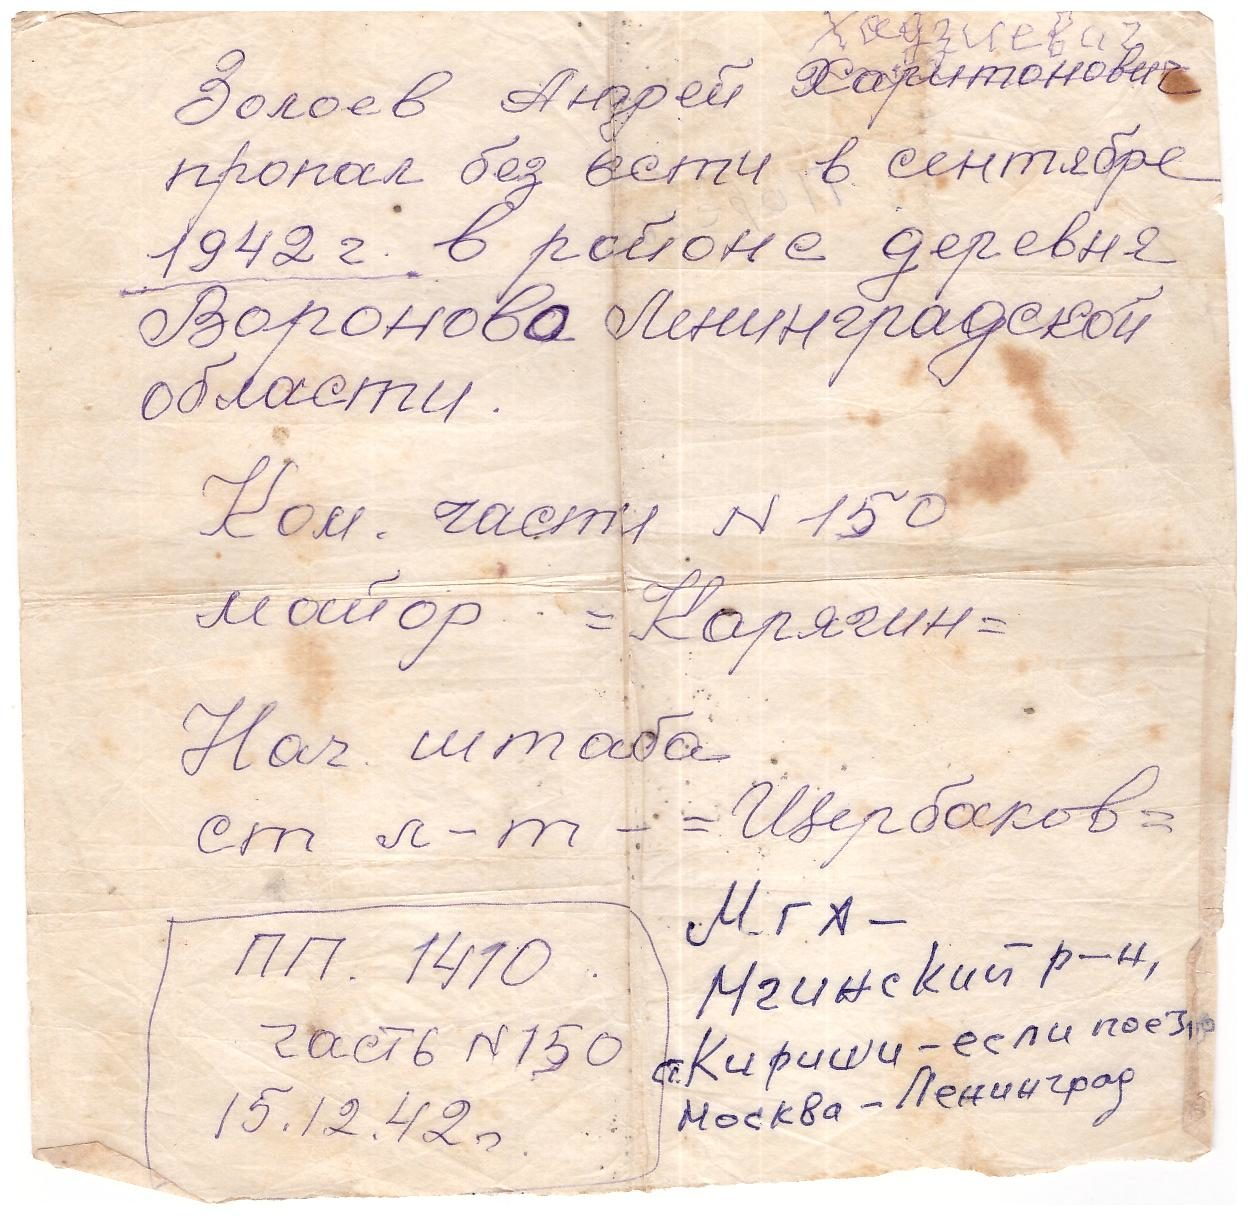 Хаджиевич
Золоев Андрей Харитонович
пропал без вести в сентябре
1942 г. в районе деревня
Вороново Ленинградской
области.
Ком. части N 150
майор =Карягин=
Нач. штаба
ст л-т - =Щербаков=
ПП. 1410.
часть N 150
15.12.42г.
Мга-
Мгинский р-н,
ст. Кириши - если поездо
Москва - Ленинград